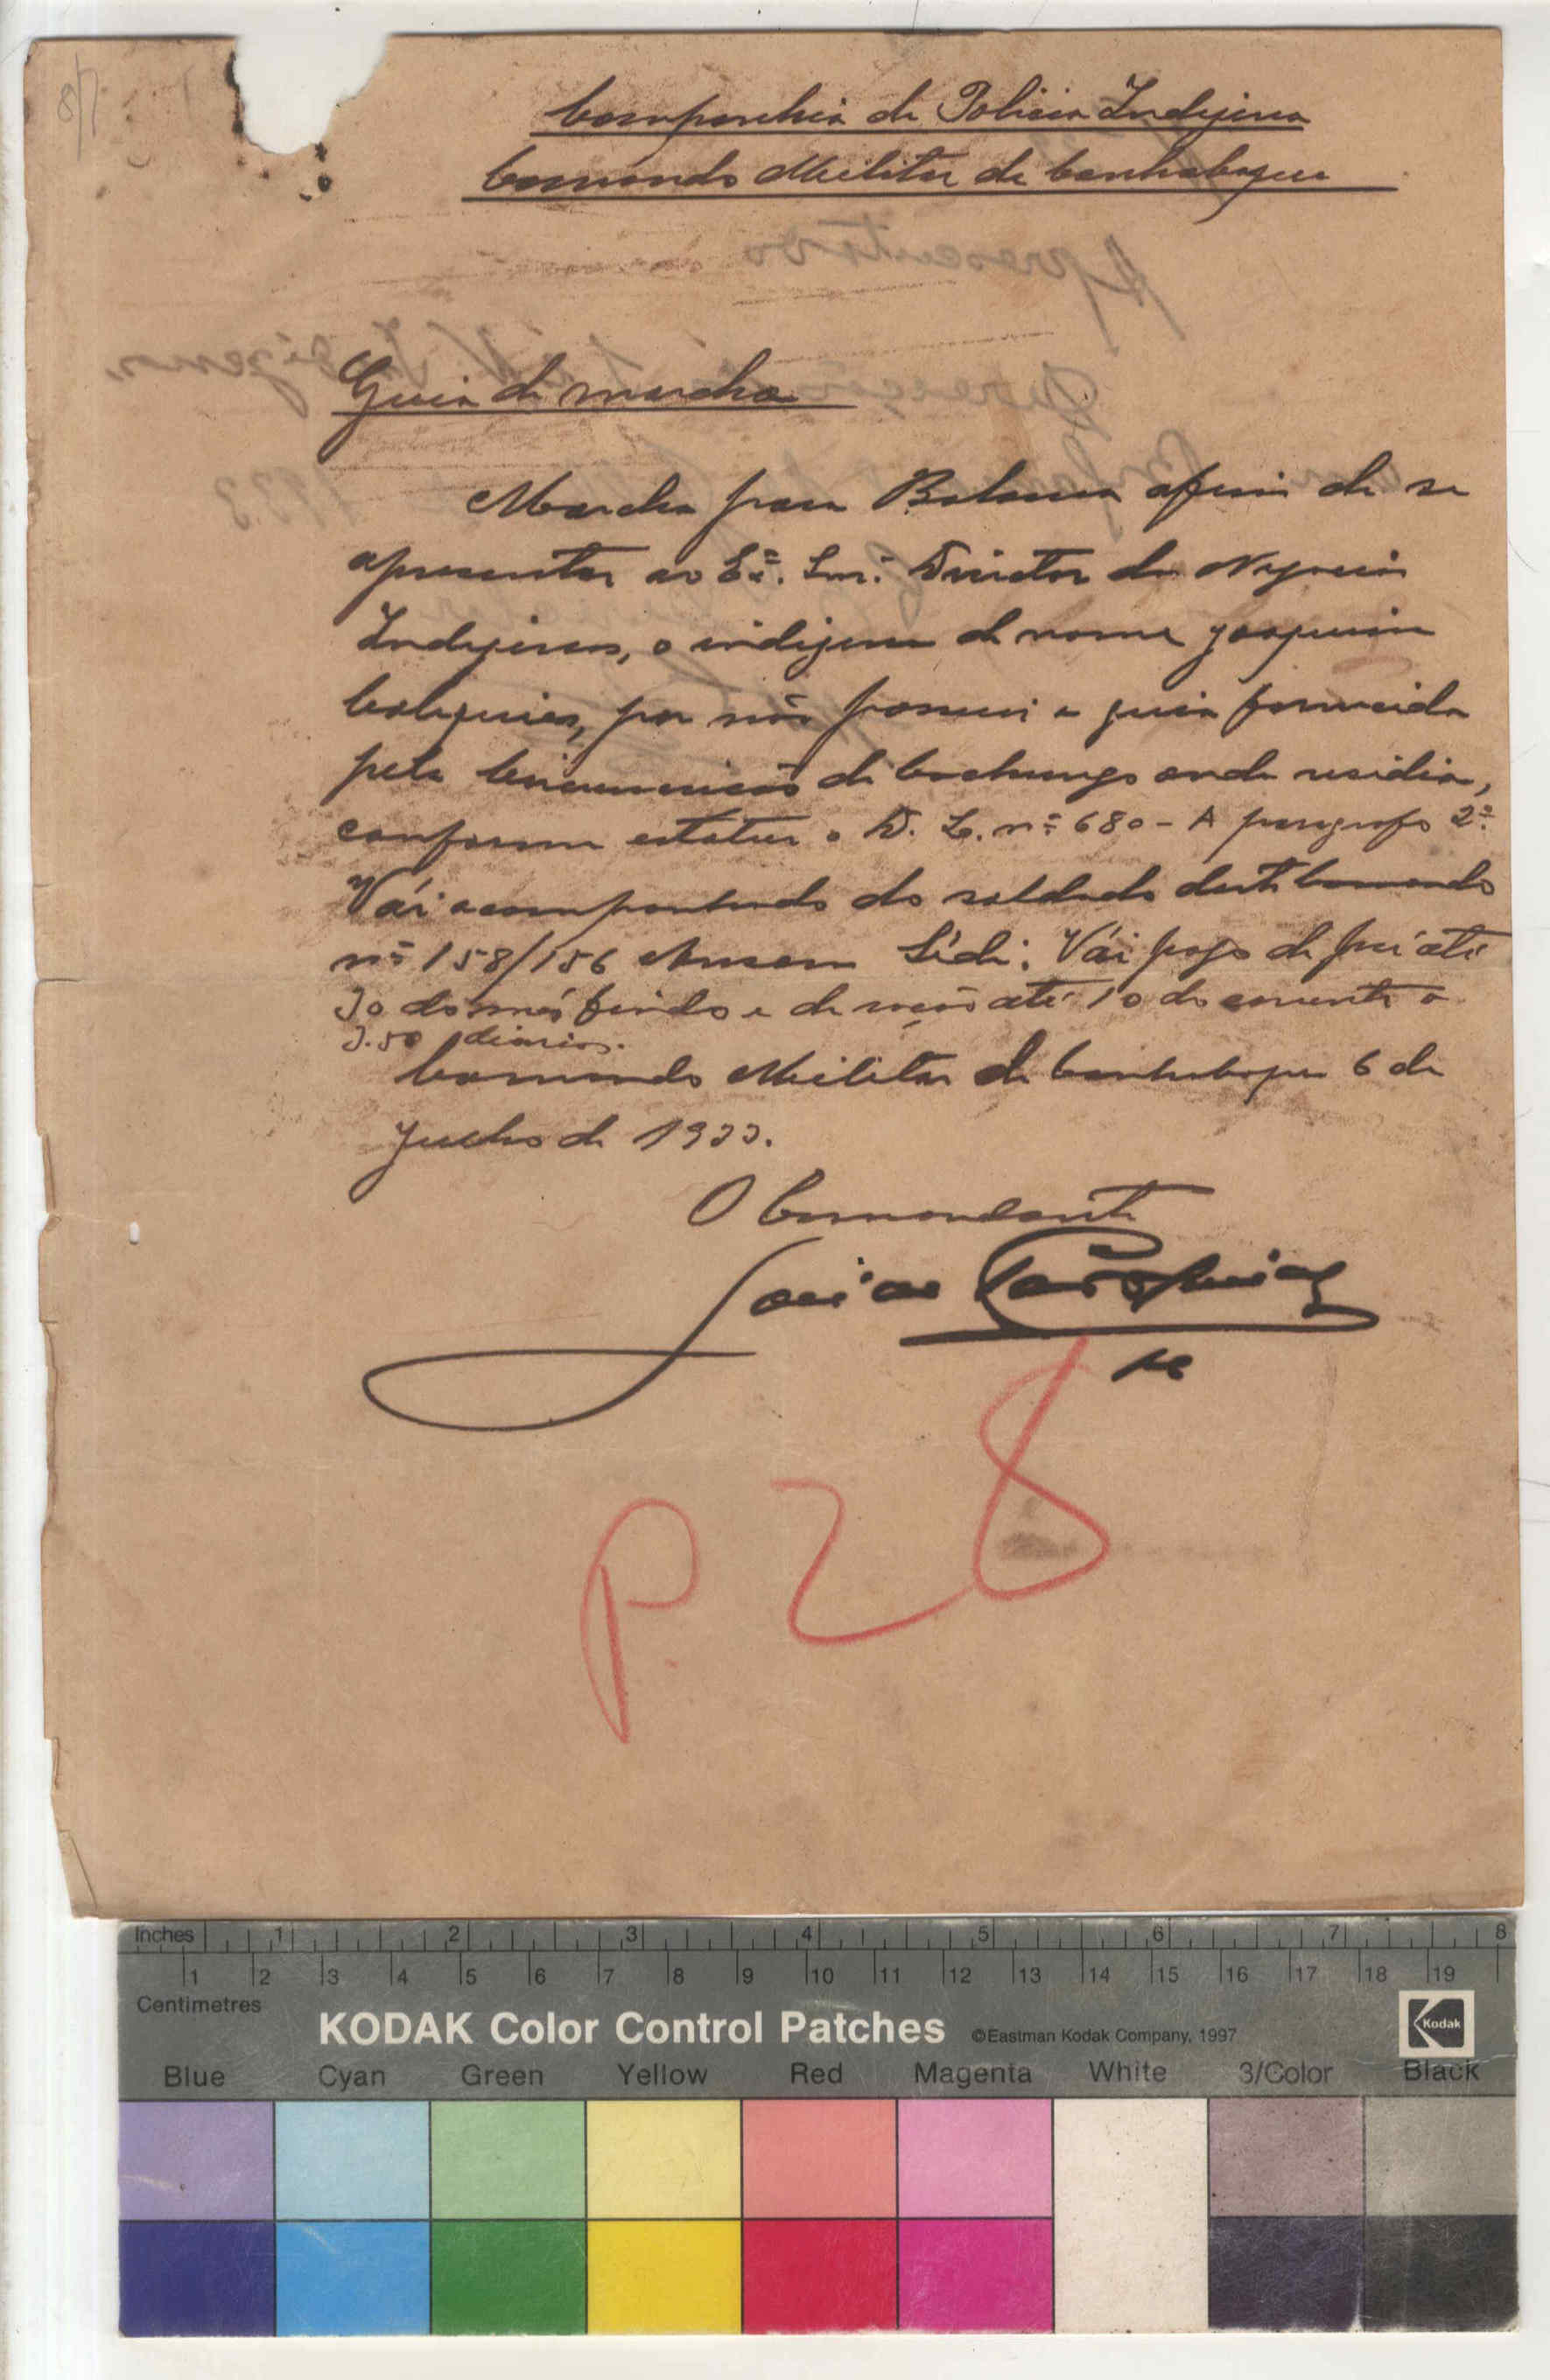 8/7
Companhia de Policia Indijena
Comando Militar de Canhabaque
Guia de marcha
Marcha para Bolama afim de se
apresentar ao Exº. Snr. Director dos Negocios
Indijenas, o indijena de nome Joaquim
por não possuir a guia fornecida
pela Circunscrição de Cachungo onde residia,
conforme estatue o D. L. nº 680-A paragrafo 2º.
Vái acompanhado do soldado deste Comando
nº 158/156 Sidi. Vái pago de pré até
30 do mês findo e de ração até 10 do corrente a
3.50 diarios.
Comando Militar de Canhabaque 6 de
Julho de 1933.
O Comandante
P. 28
Apresentado
Indigenas
1933
Inches 1 2 3 4 5 6 7 8
1 2 3 4 5 6 7 8 9 10 11 12 13 14 15 16 17 18 19
Centimetres
KODAK Color Control Patches ©Eastman Kodak Company, 1997 Kodak
Blue Cyan Green Yellow Red Magenta White 3/Color Black